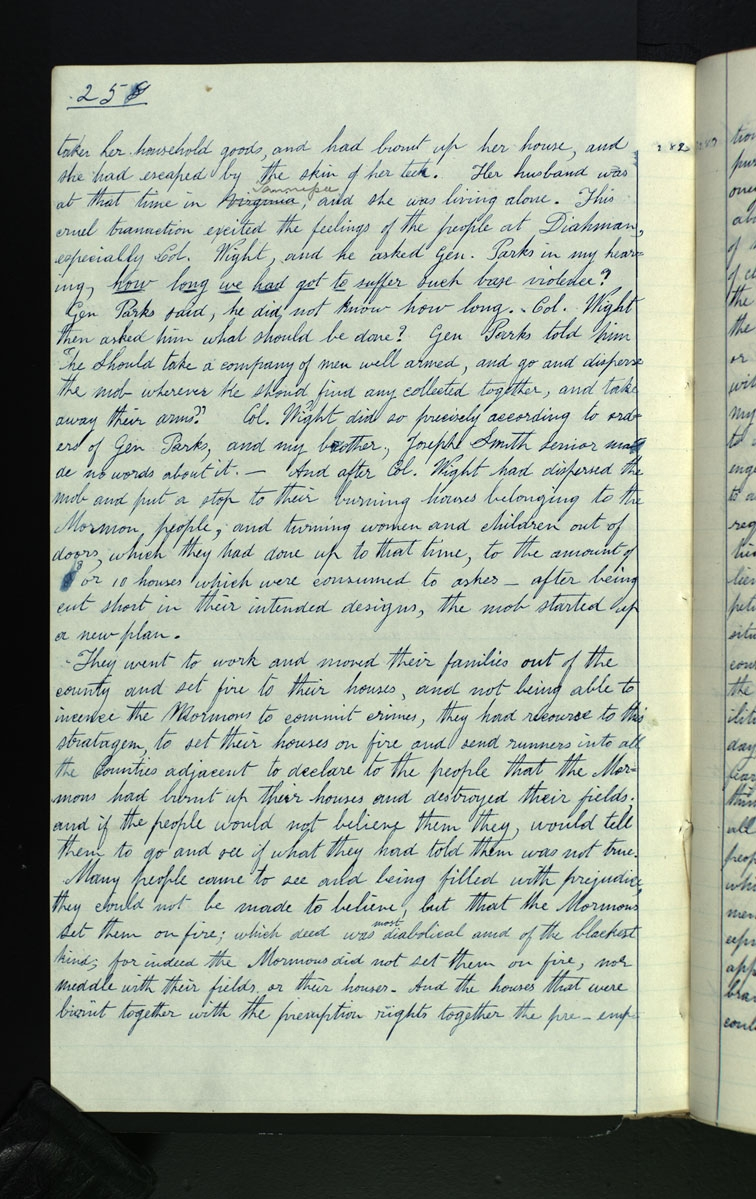 258
taken her household goods, and had burnt up her house, and
she had escaped by the skin of her teeth. Her husband was
Tennessee
at that time in Virginia, and she was living alone. This
cruel transaction excited the feelings of the people at Diahman,
especially Col. Wight, and he asked Gen. Parks in my hear-
ing, how long we had got to suffer such base violence?
Gen Parks said, he did not know how long. - Col. Wight
then asked him what should be done? Gen Parks told him
"he should take a company of men well armed, and go and disperse
the mob wherever He should find any collected together, and take
away their arms? Col. Wight did so precisely according to ord-
ers of Gen Parks, and my brother, Joseph Smith senior ma
de no words about it. — And after Col. Wight had dispersed the
mob and put a stop to their burning houses belonging to the
Mormon people, and turning women and children out of
doors, which they had done up to that time, to the amount of
8 or 10 houses which were consumed to ashes — after being
cut short in their intended designs, the mob started up
a new plan.
They went to work and moved their families out of the
county and set fire to their houses, and not being able to
incence the Mormons to commit crimes, they had recource to this
stratagem, to set their houses on fire and send runners into all
the Counties adjacent to declare to the people that the Mor-
mons had burnt up their houses and destroyed their fields.
and if the people would not believe them they, would tell
them to go and see if what they had told them was not true.
Many people came to see and being filled with prejudice,
they could not be made to believe, but that the Mormons
most
set them on fire; which deed was diabolical and of the blackest
kind; for indeed the Mormons did not set them on fire, nor
meddle with their fields or their houses. And the houses that were
burnt together with the premption rights together the pre-emp